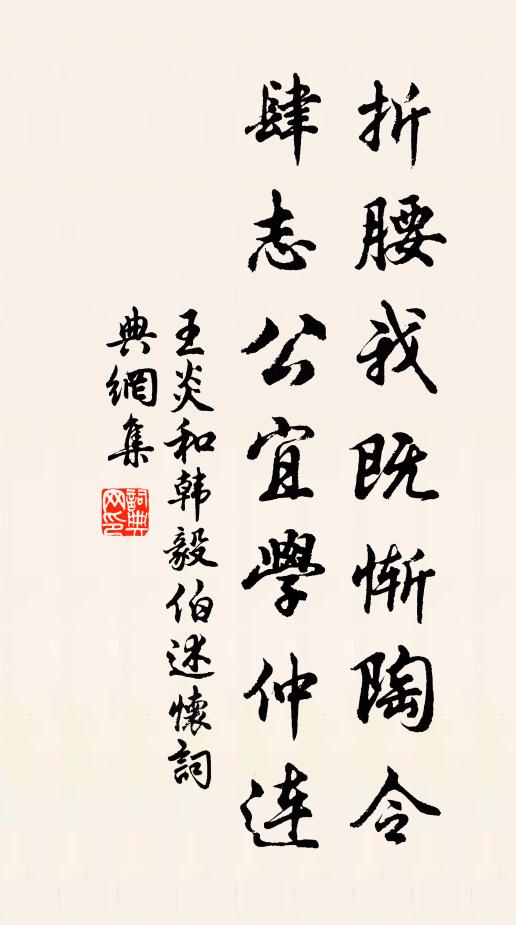 折腰我既惭陶令
肆志公宜學仲连
王炎和韩毅伯述懷詞
典網集
詞典
网印